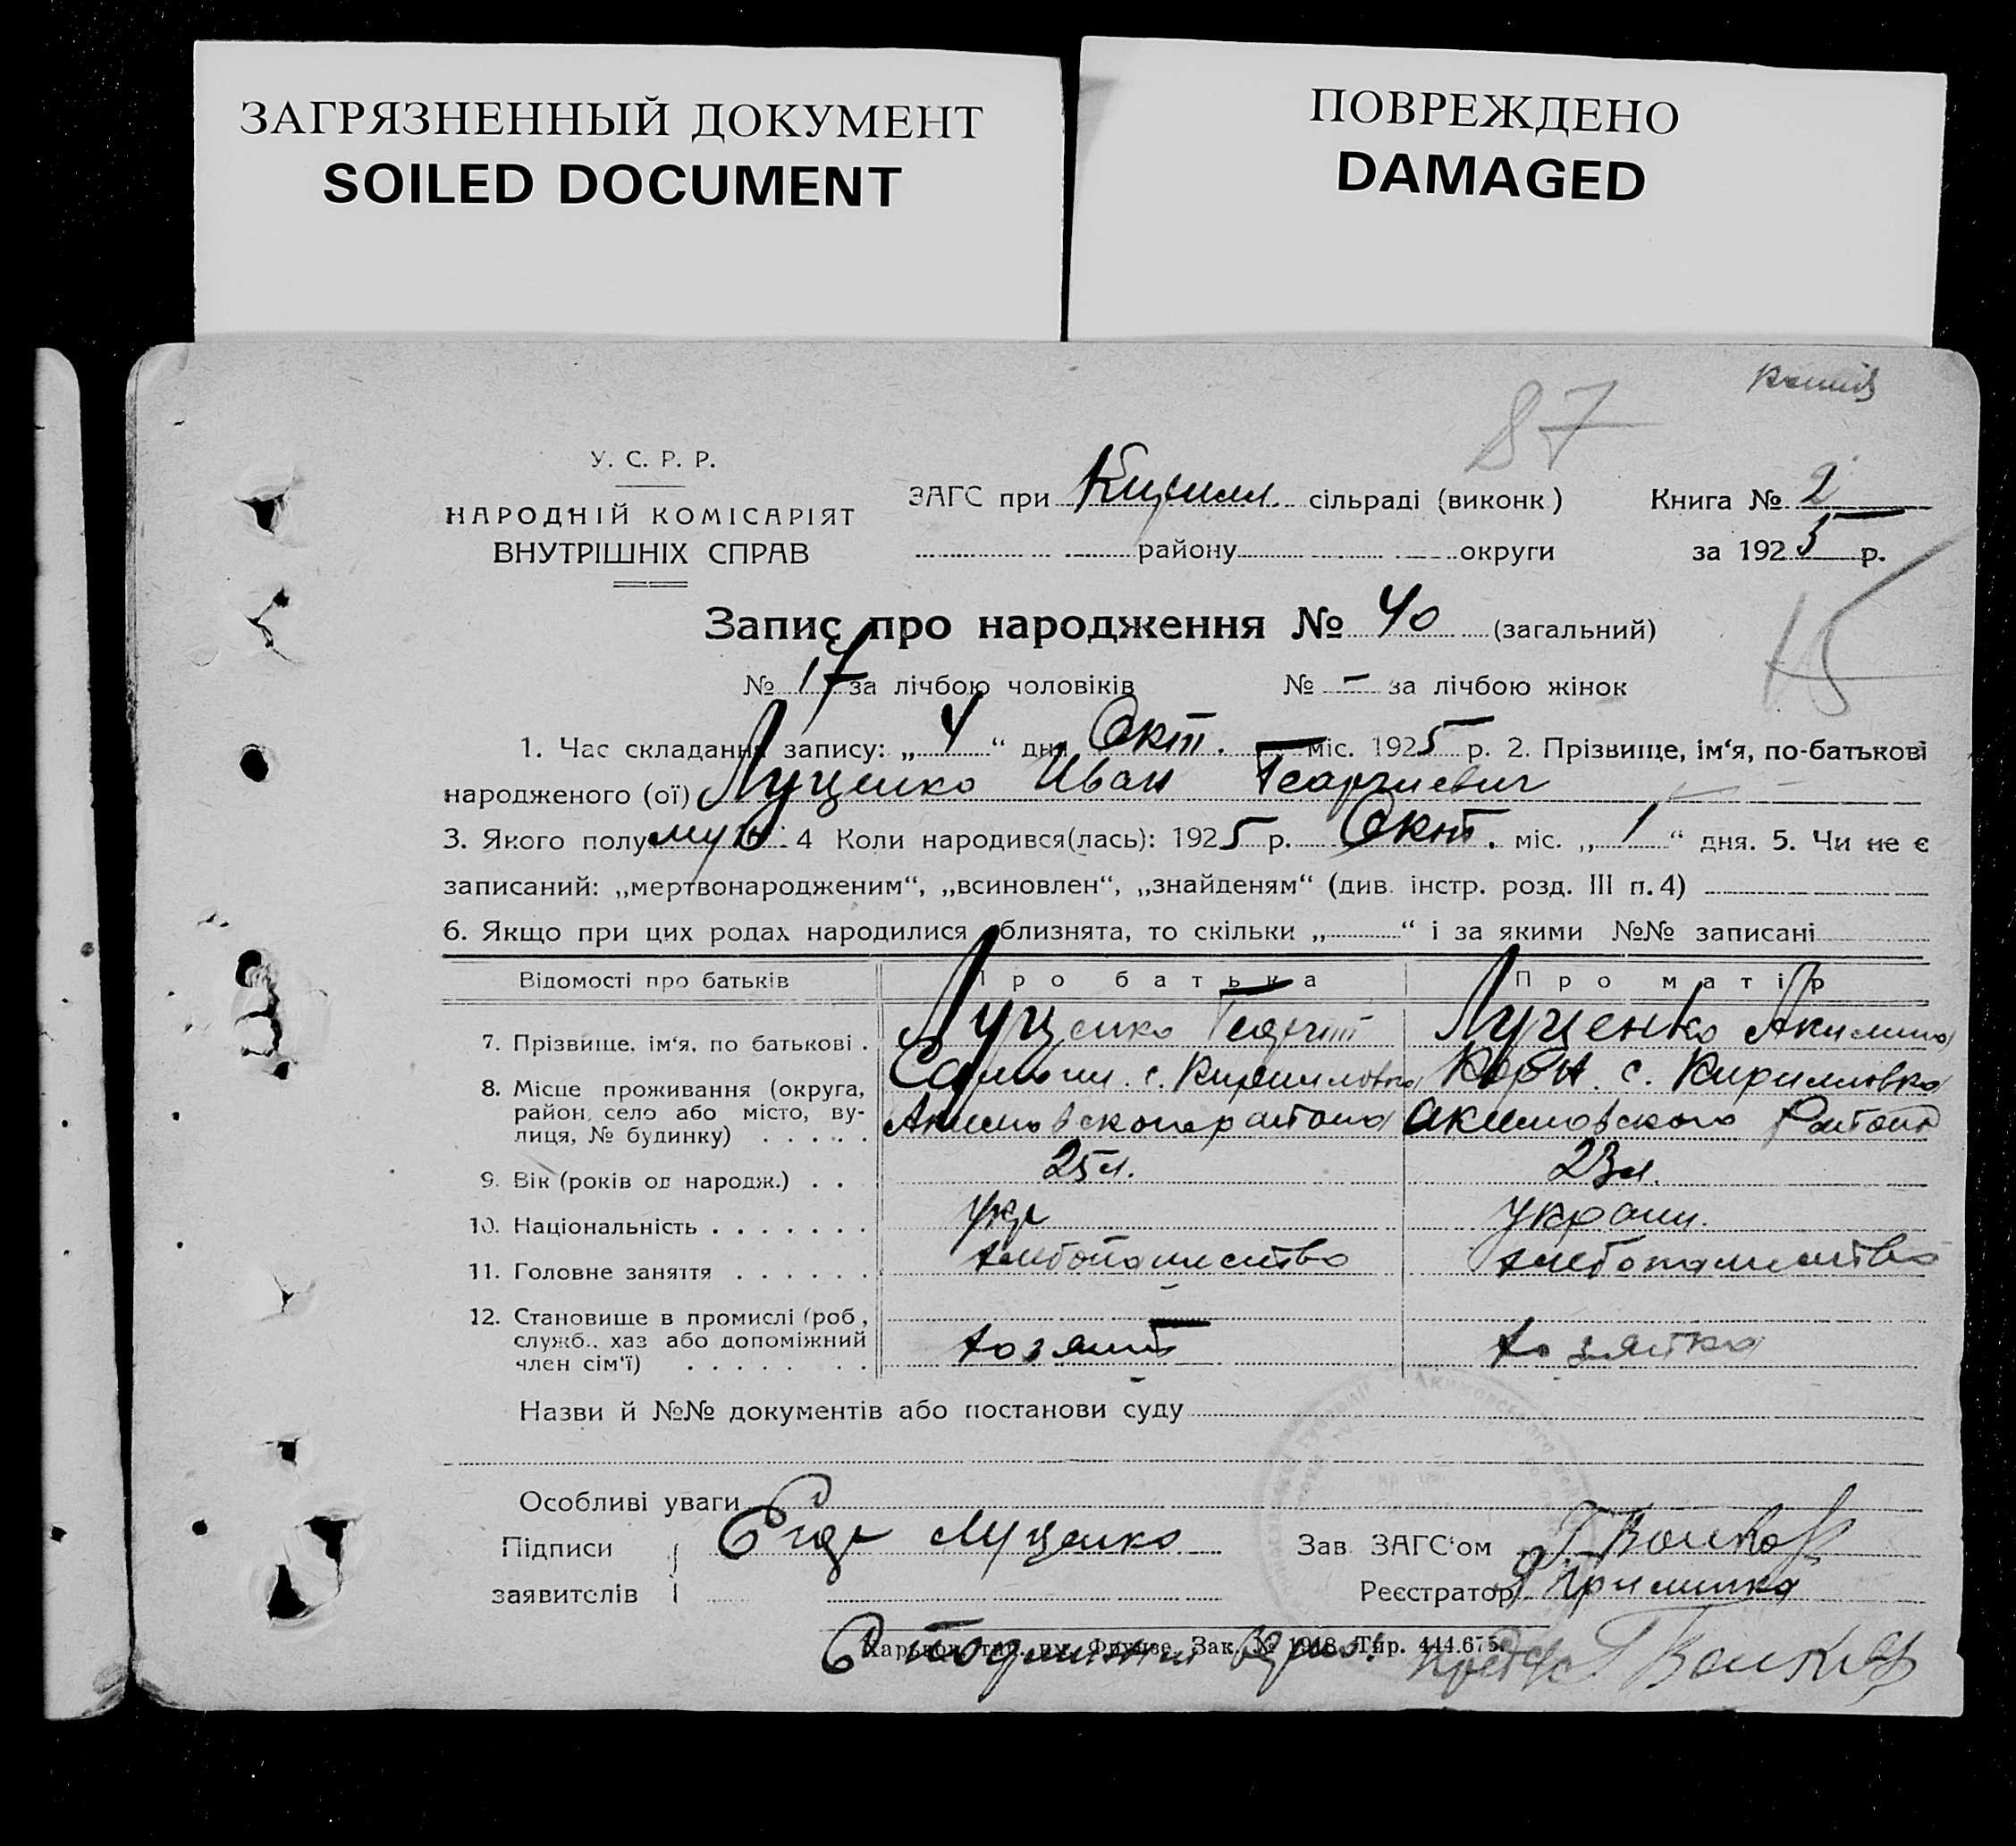 ЗАГРЯЗНЕННЫЙ ДОКУМЕНТ
SOILED DOCUMENT
ПОВРЕЖДЕНО
DAMAGED
87
У. С. Р. Р.
НАРОДНІЙ КОМІСАРІЯТ
ВНУТРІШНІХ СПРАВ
ЗАГС при Кирилл. сільраді (виконк)
Книга № 2
району округи
за 1925 р.
Запис про народження № 40 (загальний)
15
№ 17 за лічбою чоловіків № – за лічбою жінок
1. Час складання запису: „4“ дня Окт. міс. 1925 р. 2. Прізвище, ім‘я, по-батькові
народженого (ої) Луценко Иван Георгиевич
3. Якого полу муж. 4 Коли народився(лась): 1925 р. Окт. міс. „1“ дня. 5. Чи не є
записаний: „мертвонародженим“, „всиновлен“, „знайденям“ (див. інстр. розд. III п. 4)
6. Якщо при цих родах народилися близнята, то скільки „ “ і за якими №№ записані
Відомості про батьків Про батька Про матір
7. Прізвище, ім‘я, по батькові . Луценко Георгий Луценко Акилина
8. Місце проживання (округа, с. Кирилловка с. Кирилловка
район, село або місто, ву-
лиця, № будинку) . . . . . Акимовского района Акимовского Района
9. Вік (років од народж.) . . 25 л. 23 л.
10. Національність . . . . . . . Укр украин.
11. Головне заняття . . . . . . хлебопашество хлебопашество
12. Становище в промислі (роб,
служб., хаз або допоміжний
член сім‘ї) . . . . . . . . хозяин хозяйка
Назви й №№ документів або постанови суду
Особливі уваги
Підписи
заявителів
Егор Луценко
Зав. ЗАГС‘ом
Реєстратор
Зак. № 1948. Тир. 444.675.